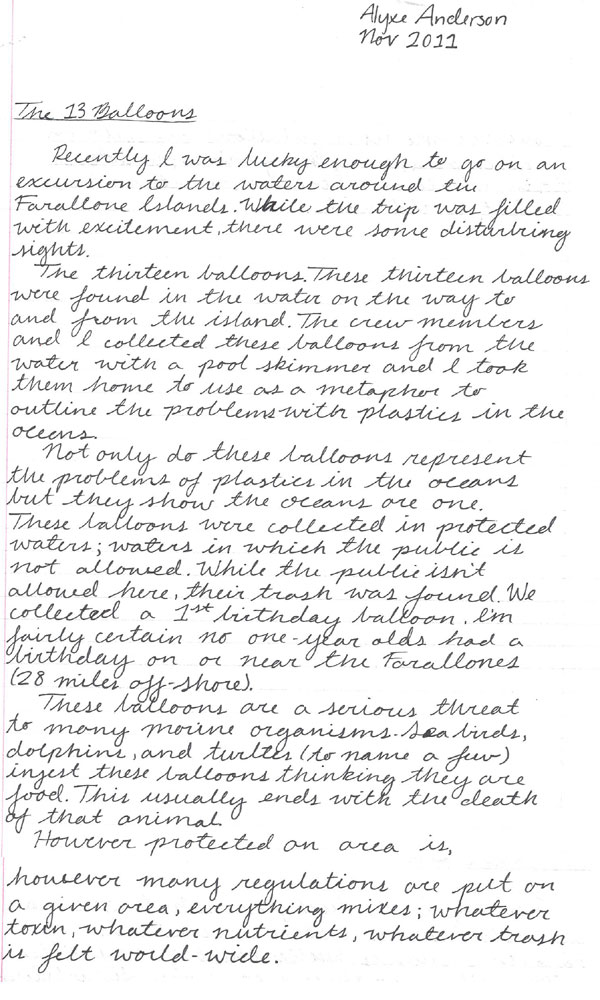 Alyxe Anderson
Nov 2011
The 13 Balloons
Recently I was lucky enough to go on an
excursion to the waters around the
Farallone Islands. While the trip was filled
with excitement, there were some disturbing
sights.
The thirteen balloons. These thirteen balloons
were found in the water on the way to
and from the island. The crew members
and I collected these balloons from the
water with a pool skimmer and I took
them home to use as a metaphor to
outline the problems with plastics in the
oceans.
Not only do these balloons represent
the problems of plastics in the oceans
but they show the oceans are one.
These balloons were collected in protected
waters; waters in which the public is
not allowed. While the public isn't
allowed here, their trash was found. We
collected a 1st birthday balloon. I'm
fairly certain no one-year olds had a
birthday on or near the Farallones
(28 miles off-shore).
These balloons are a serious threat
to many marine organisms. Sea birds,
dolphins, and turtles (to name a few)
injest these balloons thinking they are
food. This usually ends with the death
of that animal.
However protected an area is,
however many regulations are put on
a given area, everything mixes; whatever
toxin, whatever nutrients, whatever trash
is felt world-wide.